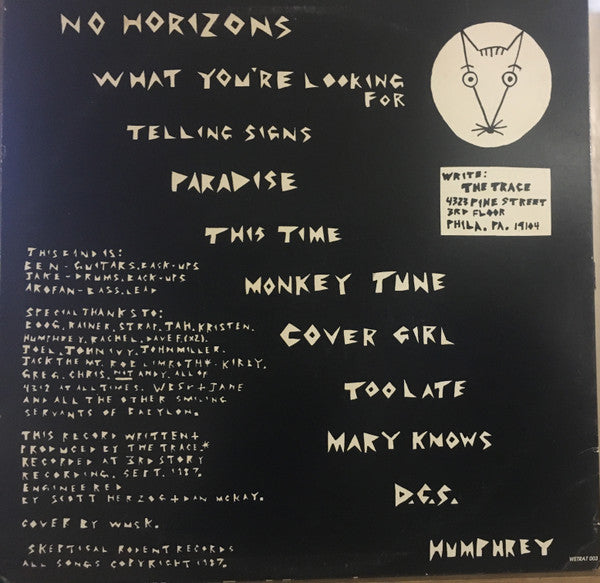 NO HORIZONS
WHAT YOU'RE LOOKING
FOR
TELLING SIGNS
PARADISE
THIS TIME
MONKEY TUNE
COVER GIRL
TOO LATE
MARY KNOWS
D.G.S.
HUMPHREY
WRITE:
THE TRACE
4323 PINE STREET
3RD FLOOR
PHILA. PA. 19104
THIS BAND IS:
BEN - GUITARS, BACK-UPS
JAKE - DRUMS, BACK-UPS
AROFAN - BASS, LEAD
SPECIAL THANKS TO:
BOOG, RAINER, STRAP, JAH, KRISTEN,
HUMPHREY, RACHEL, DAVE F. (XZ),
JOEL, JOHN IVY, JOHN MILLER,
JACK THE MT. ROB LIMROTH - KIRBY,
GREG, CHRIS, NOT ANDY, ALL OF
4312 AT ALL TIMES. WES + JANE
AND ALL THE OTHER SMILING
SERVANTS OF BABYLON.
THIS RECORD WRITTEN +
PRODUCED BY THE TRACE.*
RECORDED AT 3RD STORY
RECORDING. SEPT. 1987.
ENGINEERED
BY SCOTT HERZOG + DAN MCKAY.
COVER BY WMSK.
SKEPTICAL RODENT RECORDS
ALL SONGS COPYRIGHT 1987.
WETRAT 003